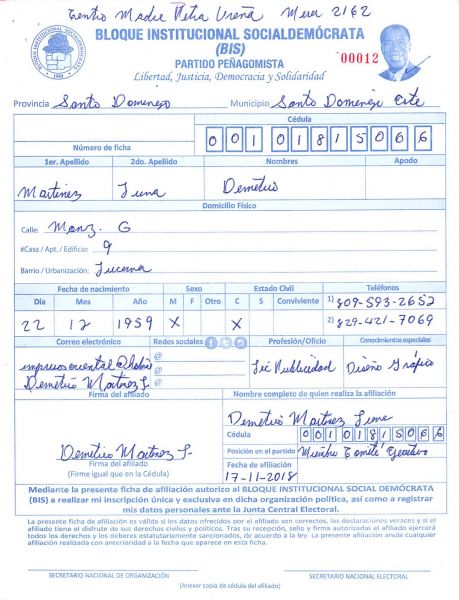 Centro Madre Petra Ureña Mesa 2162
BLOQUE INSTITUCIONAL SOCIALDEMÓCRATA
(BIS)
PARTIDO PEÑAGOMISTA
Libertad, Justicia, Democracia y Solidaridad
00012
Provincia Santo Domingo Municipio Santo Domingo Este
Cédula
Número de ficha 00101815066
1er. Apellido 2do. Apellido Nombres Apodo
Martinez Luna Demetrio
Domicilio Físico
Calle: Manz. G
#Casa / Apt. / Edificio: 9
Barrio / Urbanización: Lucerna
Fecha de nacimiento Sexo Estado Civil Teléfonos
Día Mes Año M F Otro C S Conviviente 1) 809-593-2652
22 12 1959 X X 2) 829-421-7069
Correo electrónico Redes sociales Profesión/Oficio Conocimientos especiales
@ Lic Publicidad Diseño Gráfico
Demetrio Martinez L. @
Firma del afiliado Nombre completo de quien realiza la afiliación
Demetrio Martinez Luna
Cédula 00101815066
Demetrio Martinez L. Posición en el partido Miembro Comité Ejecutivo
Firma del afiliado Fecha de afiliación
(Firme igual que en la Cédula) 17-11-2018
Mediante la presente ficha de afiliación autorizo al BLOQUE INSTITUCIONAL SOCIAL DEMÓCRATA
(BIS) a realizar mi inscripción única y exclusiva en dicha organización política, así como a registrar
mis datos personales ante la Junta Central Electoral.
La presente afiliación es válida si los datos ofrecidos por el afiliado son correctos, las declaraciones veraces y si el
afiliado tiene el disfrute de sus derechos civiles y políticos. Tras su recepción, sello y firma autorizadas el afiliado ejercerá
todos los derechos y los deberes estatutariamente sancionados, de acuerdo a la ley. La presente afiliación anula cualquier
afiliación realizada con anterioridad a la fecha que aparece en esta ficha.
SECRETARIO NACIONAL DE ORGANIZACIÓN SECRETARIO NACIONAL ELECTORAL
(Anexar copia de cédula del afiliado)